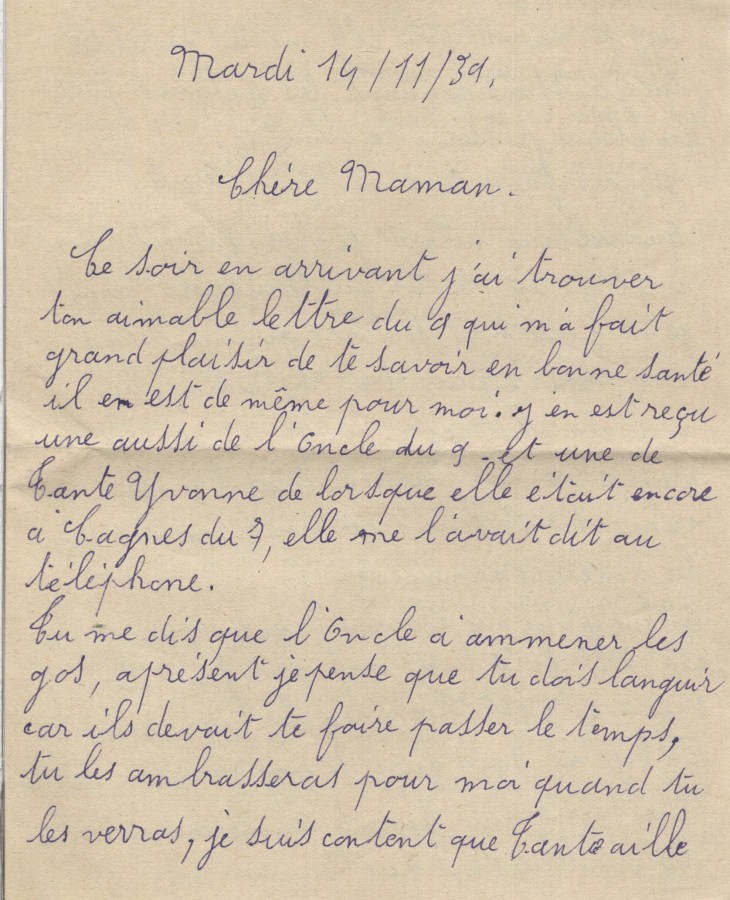 Mardi 14/11/39.
Chère Maman.
Ce soir en arrivant j'ai trouver
ton aimable lettre du 9 qui m'a fait
grand plaisir de te savoir en bonne santé
il en est de même pour moi. j'en est reçu
une aussi de l'Oncle du 9 et une de
Tante Yvonne de lorsque elle était encore
à Cagnes du 7, elle me l'avait dit au
téléphone.
Tu me dis que l'Oncle à ammener les
gos, aprésent je pense que tu dois languir
car ils devait te faire passer le temps,
tu les ambrasseras pour moi quand tu
les verras, je suis content que Tante aille